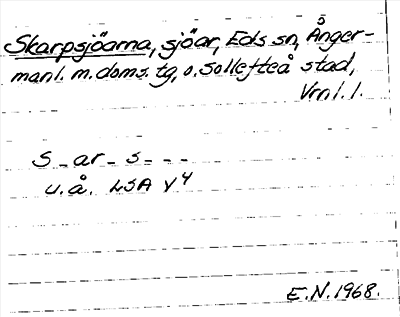 Skarpsjöarna, sjöar, Eds sn, Ånger-
manl. m. doms. tg, o. Sollefteå stad,
Vrnl. l.
S - ar - s - - -
u.å. LSA Y4
E.N. 1968.